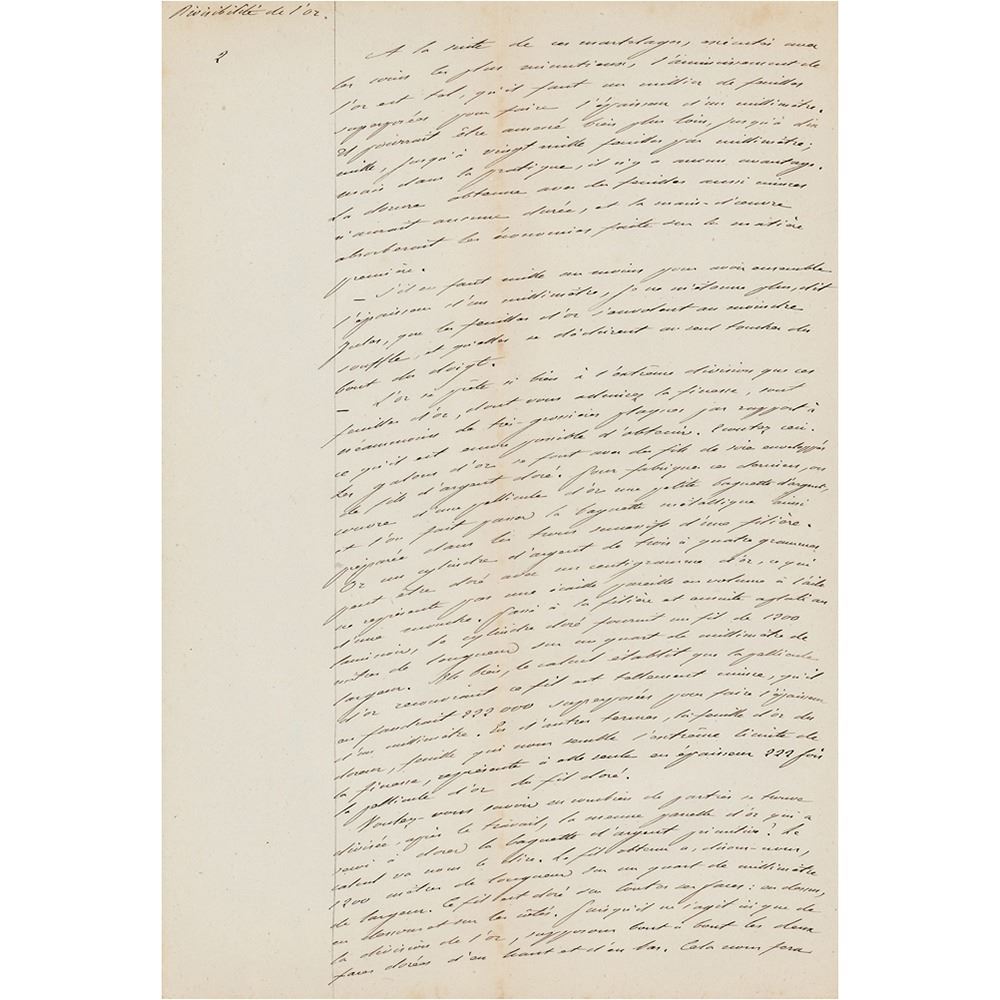 Divisibilité de l'or.
2
A la suite de ces martelages, exécutés avec
les soins les plus minutieux, l'amincissement de
l'or est tel, qu'il faut un millier de feuilles
superposées pour faire l'épaisseur d'un millimètre.
Il pourrait être amené bien plus loin, jusqu'à dix
mille, jusqu'à vingt mille feuilles par millimètre;
mais dans la pratique, il n'y a aucun avantage.
La dorure obtenue avec des feuilles aussi minces
n'aurait aucune durée, et la main-d'œuvre
absorberait les économies faites sur la matière
première.
— S'il en faut mille au moins pour avoir ensemble
l'épaisseur d'un millimètre, je ne m'étonne plus, dit
Jules, que les feuilles d'or s'envolent au moindre
souffle, et qu'elles se déchirent au seul toucher du
bout du doigt.
— L'or se prête si bien à l'extrême division que ces
feuilles d'or, dont vous admirez la finesse, sont
néanmoins de très-grossières plaques par rapport à
ce qu'il est encore possible d'obtenir. Ecoutez ceci.
Les galons d'or se font avec des fils de soie enveloppés
de fils d'argent doré. Pour fabriquer ces derniers, on
couvre d'une pellicule d'or une petite baguette d'argent,
et l'on fait passer la baguette métallique ainsi
préparée dans les trous successifs d'une filière.
Or un cylindre d'argent de trois à quatre grammes
peut être doré avec un centigramme d'or, ce qui
ne représente pas une écaille pareille en volume à l'aile
d'une mouche. Passé à la filière et ensuite aplati au
laminoir, le cylindre doré fournit un fil de 1200
mètres de longueur sur un quart de millimètre de
largeur. Eh bien, le calcul établit que la pellicule
d'or recouvrant ce fil est tellement mince, qu'il
en faudrait 222 000 superposées pour faire l'épaisseur
d'un millimètre. En d'autres termes, la feuille d'or du
doreur, feuille qui nous semble l'extrême limite de
la finesse, représente à elle seule en épaisseur 222 fois
la pellicule d'or du fil doré.
Voulez-vous savoir en combien de parties se trouve
divisée, après le travail, la menue parcelle d'or, qui a
servi à dorer la baguette d'argent primitive? Le
calcul va nous le dire. Le fil obtenu a, disons-nous,
1200 mètres de longueur sur un quart de millimètre
de largeur. Ce fil est doré sur toutes ses faces: en dessus,
en dessous et sur les côtés. Puisqu'il ne s'agit ici que de
la division de l'or, supposons bout à bout les deux
faces dorées d'en haut et d'en bas. Cela nous fera